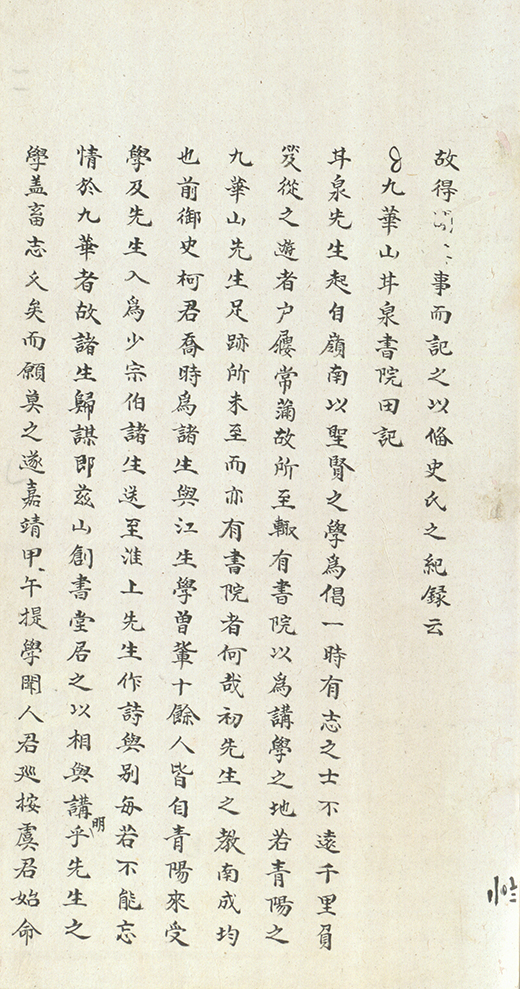 故得 事而記之以偹史氏之紀錄云
九華山甘泉書院田記
甘泉先生起自嶺南以聖賢之學為倡一時有志之士不遠千里負
笈從之遊者户屨常滿故所至輙有書院以為講學之地若青陽之
九華山先生足跡所未至而亦有書院者何哉初先生之教南成均
也前御史柯君喬時為諸生與江生學曽軰十餘人皆自青陽來受
學及先生入為少宗伯諸生送至淮上先生作詩與别每若不能忘
情於九華者故諸生歸謀即兹山創書堂居之以相與講明乎先生之
學盖畜志久矣而願莫之遂嘉靖甲午提學聞人君廵按虞君始命